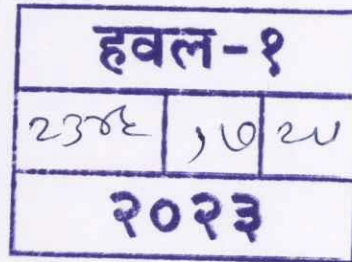 हवल-१
२३४६ १७ २५
२०२३